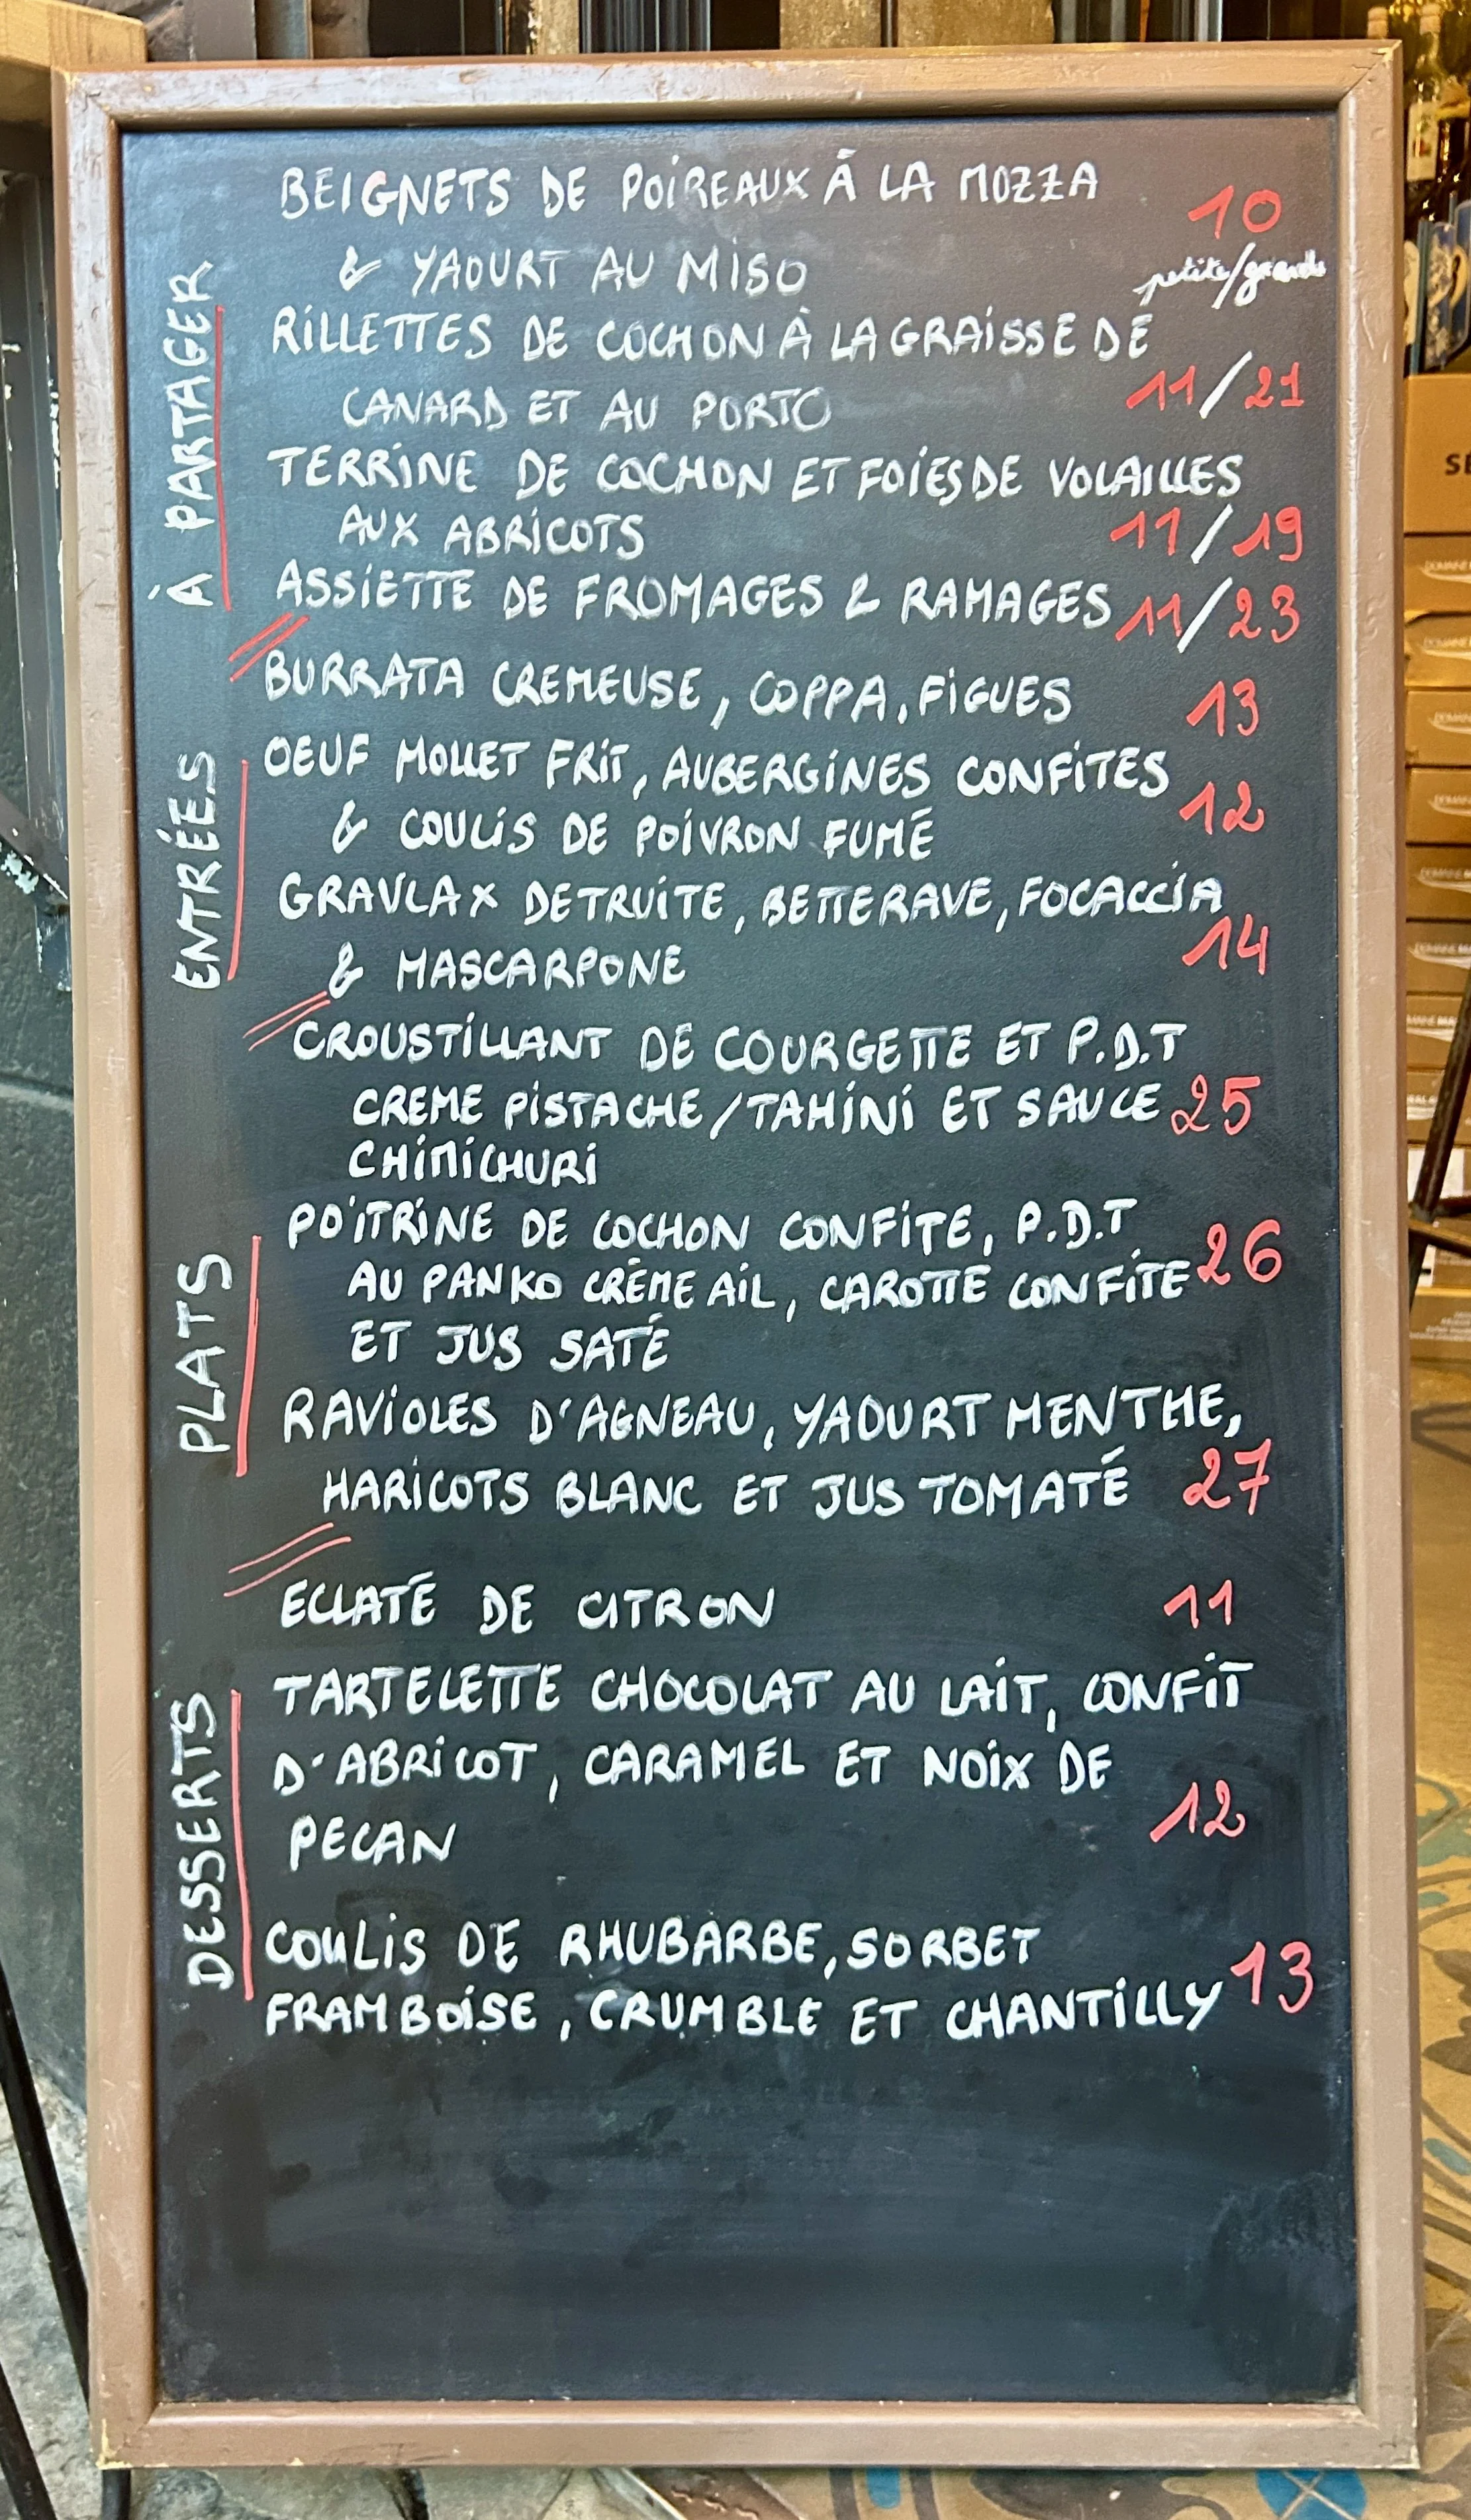 À PARTAGER
BEIGNETS DE POIREAUX À LA MOZZA
10
& YAOURT AU MISO
petite/grande
RILLETTES DE COCHON À LA GRAISSE DE
CANARD ET AU PORTO 11/21
TERRINE DE COCHON ET FOIES DE VOLAILLES
AUX ABRICOTS 11/19
ASSIETTE DE FROMAGES & RAMAGES 11/23
ENTRÉES
BURRATA CREMEUSE, COPPA, FIGUES 13
OEUF MOLLET FRIT, AUBERGINES CONFITES
& COULIS DE POIVRON FUMÉ 12
GRAVLAX DE TRUITE, BETTERAVE, FOCACCIA
& MASCARPONE 14
PLATS
CROUSTILLANT DE COURGETTE ET P.D.T
CREME PISTACHE/TAHINI ET SAUCE 25
CHIMICHURI
POITRINE DE COCHON CONFITE, P.D.T
AU PANKO CRÈME AIL, CAROTTE CONFITE 26
ET JUS SATÉ
RAVIOLES D'AGNEAU, YAOURT MENTHE,
HARICOTS BLANC ET JUS TOMATÉ 27
DESSERTS
ECLATÉ DE CITRON 11
TARTELETTE CHOCOLAT AU LAIT, CONFIT
D'ABRICOT, CARAMEL ET NOIX DE
PECAN 12
COULIS DE RHUBARBE, SORBET
FRAMBOISE, CRUMBLE ET CHANTILLY 13